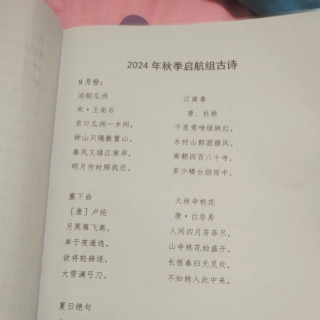 2024 年秋季启航组古诗
9 月份:
泊船瓜洲
宋·王安石
京口瓜洲一水间,
钟山只隔数重山。
春风又绿江南岸,
明月何时照我还。
江南春
唐、杜牧
千里莺啼绿映红,
水村山郭酒旗风。
南朝四百八十寺,
多少楼台烟雨中。
塞下曲
[唐] 卢纶
月黑雁飞高,
单于夜遁逃。
欲将轻骑逐,
大雪满弓刀。
大林寺桃花
唐·白居易
人间四月芳菲尽,
山寺桃花始盛开。
长恨春归无觅处,
不知转入此中来。
夏日绝句